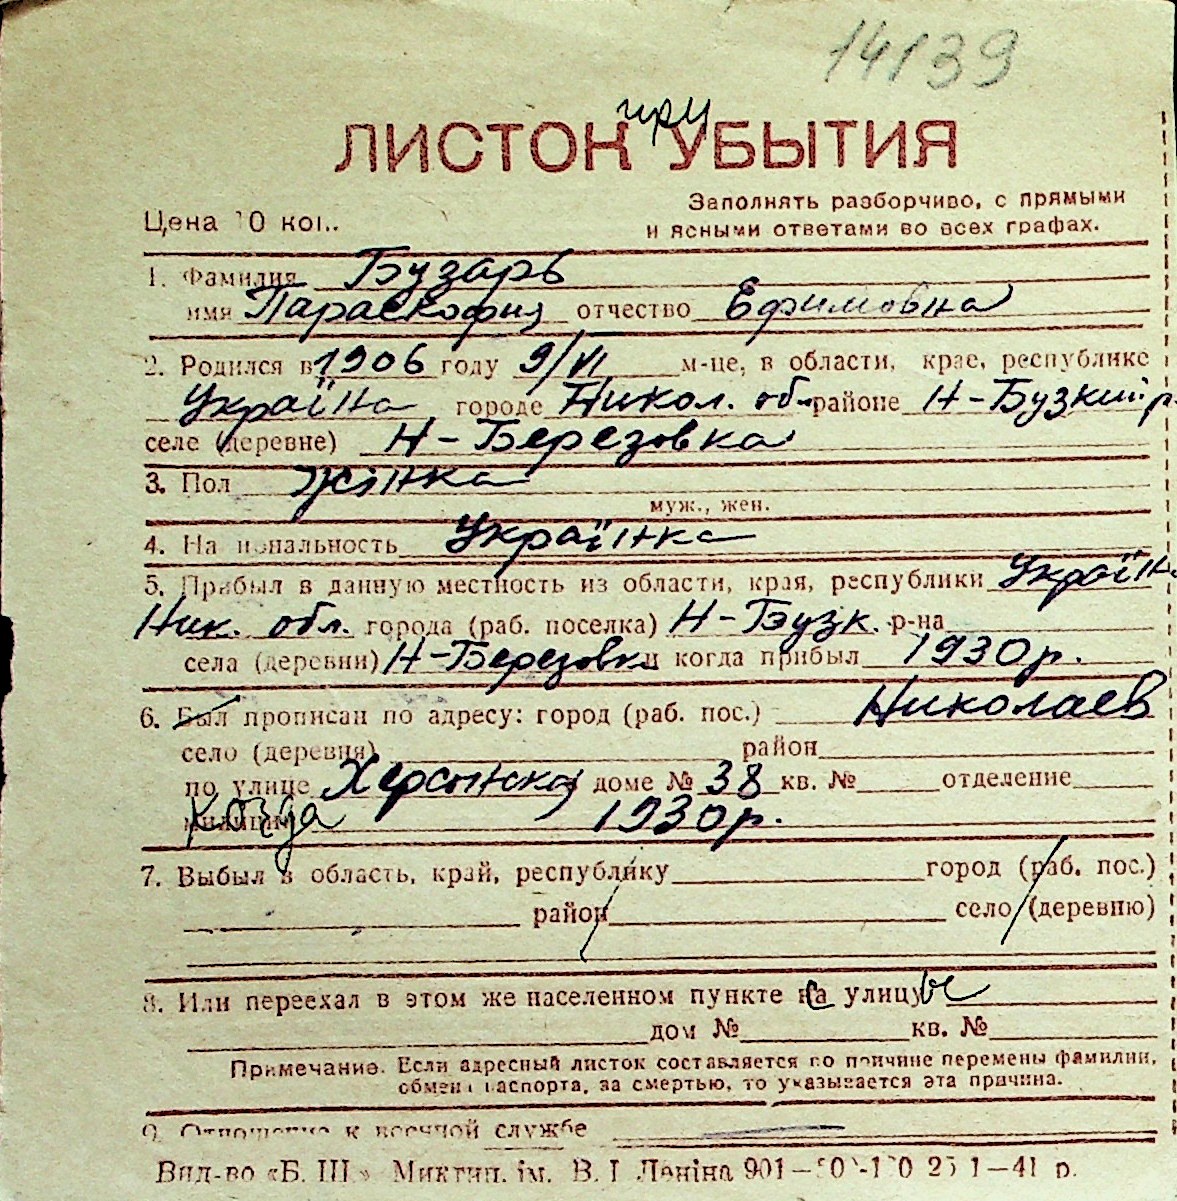 14139
при
ЛИСТОК УБЫТИЯ
Заполнять разборчиво, с прямыми
Цена 10 коп.
и ясными ответами во всех графах.
1. Фамилия Бузарь
имя Параскофия отчество Ефимовна
2. Родился в 1906 году 9/VI м-це, в области, крае, республике
Україна городе Никол. обл. районе Н-Бузкий р.
селе (деревне) Н-Березовка
3. Пол жінка
муж., жен.
4. Национальность Українка
5. Прибыл в данную местность из области, края, республики Україна
Ник. обл. города (раб. поселка) Н-Бузк. р-на
села (деревни) Н-Березовки когда прибыл 1930 р.
6. Был прописан по адресу: город (раб. пос.) Николаев
село (деревня) район
по улице Херсонская доме № 38 кв. № отделение
милиции когда 1930 р.
7. Выбыл в область, край, республику город (раб. пос.)
район село (деревню)
8. Или переехал в этом же населенном пункте с улицы
дом № кв. №
Примечание. Если адресный листок составляется по причине перемены фамилии,
обмена паспорта, за смертью, то указывается эта причина.
9. Отношение к военной службе
Вид-во «Б. Ш.» Миктип. ім. В. І Леніна 1—41 р.